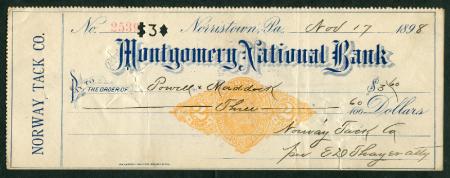 No. 2539 $3◆ Norristown, Pa. Nov 17 1898
Montgomery National Bank
PAY TO
THE ORDER OF Powell & Maddock $3 60
Three 60/100 Dollars
Norway Tack Co
per E D Thayer atty
NORWAY TACK CO.